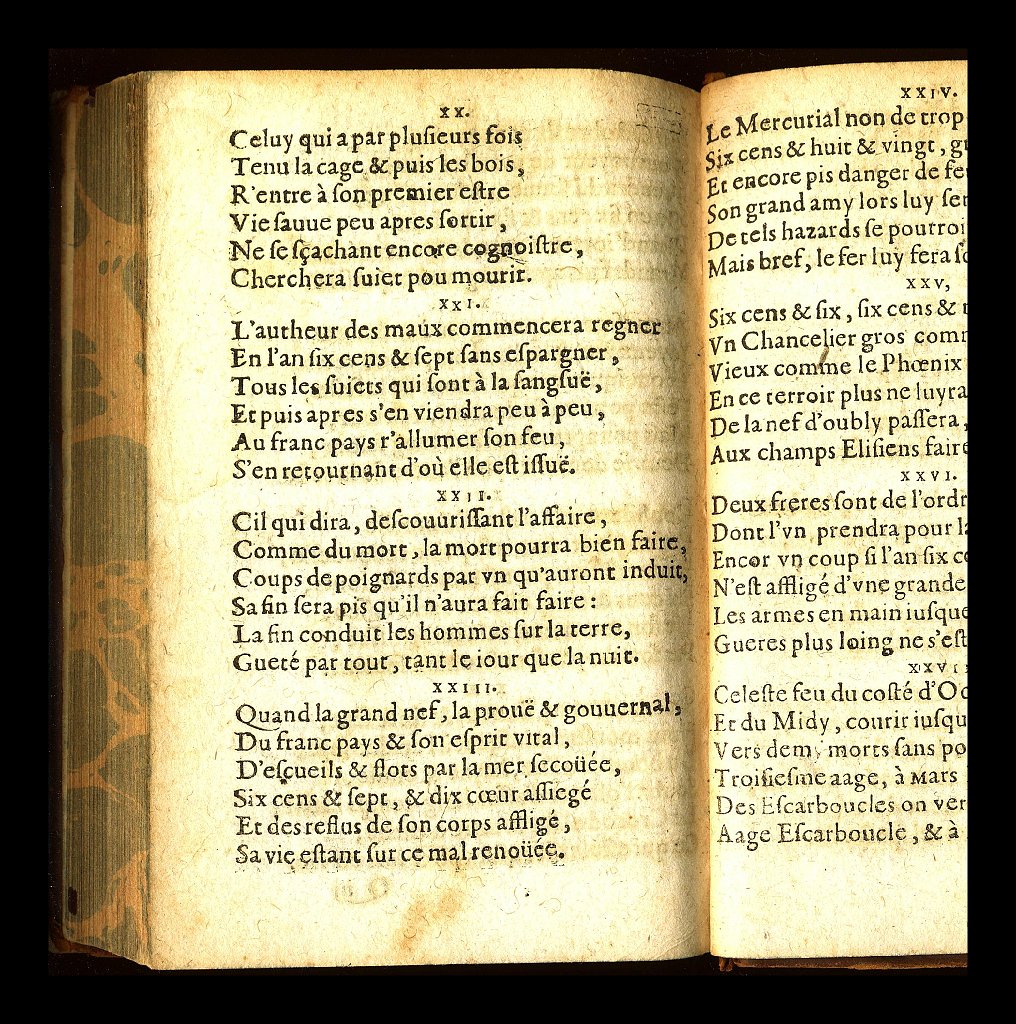 XX.
Celuy qui a par plusieurs fois
Tenu la cage & puis les bois,
R'entre à son premier estre
Vie sauue peu apres sortir,
Ne se sçachant encore cognoistre,
Cherchera suiet pou mourir.
XXI.
L'autheur des maux commencera regner
En l'an six cens & sept sans espargner,
Tous les suiets qui sont à la sangsuë,
Et puis apres s'en viendra peu à peu,
Au franc pays r'allumer son feu,
S'en retournant d'où elle est issuë.
XXII.
Cil qui dira, descouurissant l'affaire,
Comme du mort, la mort pourra bien faire,
Coups de poignards par vn qu'auront induit,
Sa fin sera pis qu'il n'aura fait faire:
La fin conduit les hommes sur la terre,
Gueté par tout, tant le iour que la nuit.
XXIII.
Quand la grand nef, la prouë & gouuernal,
Du franc pays & son esprit vital,
D'escueils & flots par la mer secoüée,
Six cens & sept, & dix cœur assiegé
Et des reflus de son corps affligé,
Sa vie estant sur ce mal renoüée.
XXIV.
Le Mercurial non de trop
Six cens & huit & vingt,
Et encore pis danger de
Son grand amy lors luy
De tels hazards se
Mais bref, le fer luy fera
XXV,
Six cens & six, six cens &
Vn Chancelier gros
Vieux comme le Phœnix
En ce terroir plus ne luyra
De la nef d'oubly passera,
Aux champs Elisiens
XXVI.
Deux freres sont de
Dont l'vn prendra pour
Encor vn coup si l'an six
N'est affligé d'vne grande
Les armes en main
Gueres plus loing ne
XXVI
Celeste feu du costé
Et du Midy, courir
Vers demy morts sans
Troisiesme aage, à Mars
Des Escarboucles on
Aage Escarboucle, & à